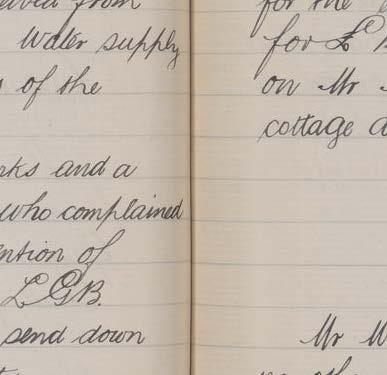 from
Water supply
s of the
rks and a
who complained
ention of
L.G.B.
send down
for the
for £
on Mr
cottage a
Mr W